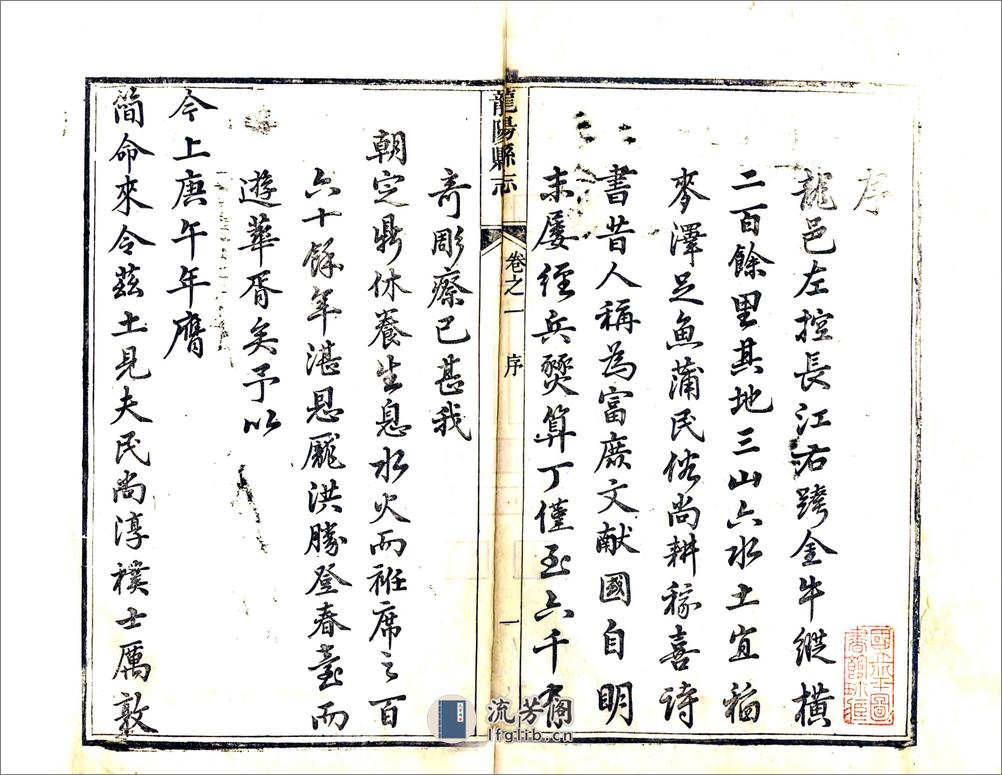 序
龍邑左控長江右跨金牛縱橫
二百餘里其地三山六水土宜稻
麥澤足魚蒲民俗尚耕稼喜詩
書昔人稱為富庶文献國自明
末屡經兵燹算丁僅至六千有
龍陽縣志 卷之一 序 一
奇彫瘵已甚我
朝定鼎休養生息水火而袵席之百
六十餘年湛恩龎洪勝登春臺而
遊華胥矣予以
今上庚午年膺
簡命來令茲土見夫民尚淳樸士厲敦
流芳阁
lfglib.cn